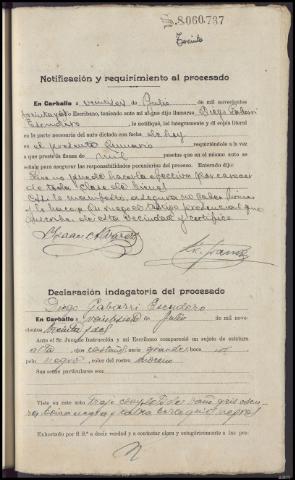 S.8.060.737
Treinta
Notificación y requirimiento al procesado
En Carballo a veintiseis de Julio de mil novecientos
treinta y dos Escribano, teniendo ante mí al que dijo llamarse Diego Gabarri
Escudero le notifiqué, leí íntegramente y dí copia literal
en la parte necesaria del auto dictado con fecha de hoy
en el presente sumario requiriéndole a la vez
a que preste la fianza de mil pesetas que en el mismo auto se
señala para asegurar las responsabilidades pecuniarias del proceso. Enterado
dijo no puede hacerla efectiva por carecer
de toda clase de bienes
Así lo manifestó, asegura no saber firmar
y lo hace a su ruego el testigo presencial que
suscribe de esta vecindad y certifico.
Declaración indagatoria del procesado
Diego Gabarri Escudero
En Carballo a veintiseis de Julio de mil nove-
cientos treinta y dos
Ante el Sr. Juez de Instrucción y mí Escribano compareció un sujeto de estatura
alta ojos castaños nariz grande
pelo negro color del rostro moreno
Son señas particulares
Viste en este acto traje completo de pana gris oscu-
ra, boina negra y calza borceguíes negros
Exhortado por S. S.ª a decir verdad y a contestar clara y categóricamente a las pre-